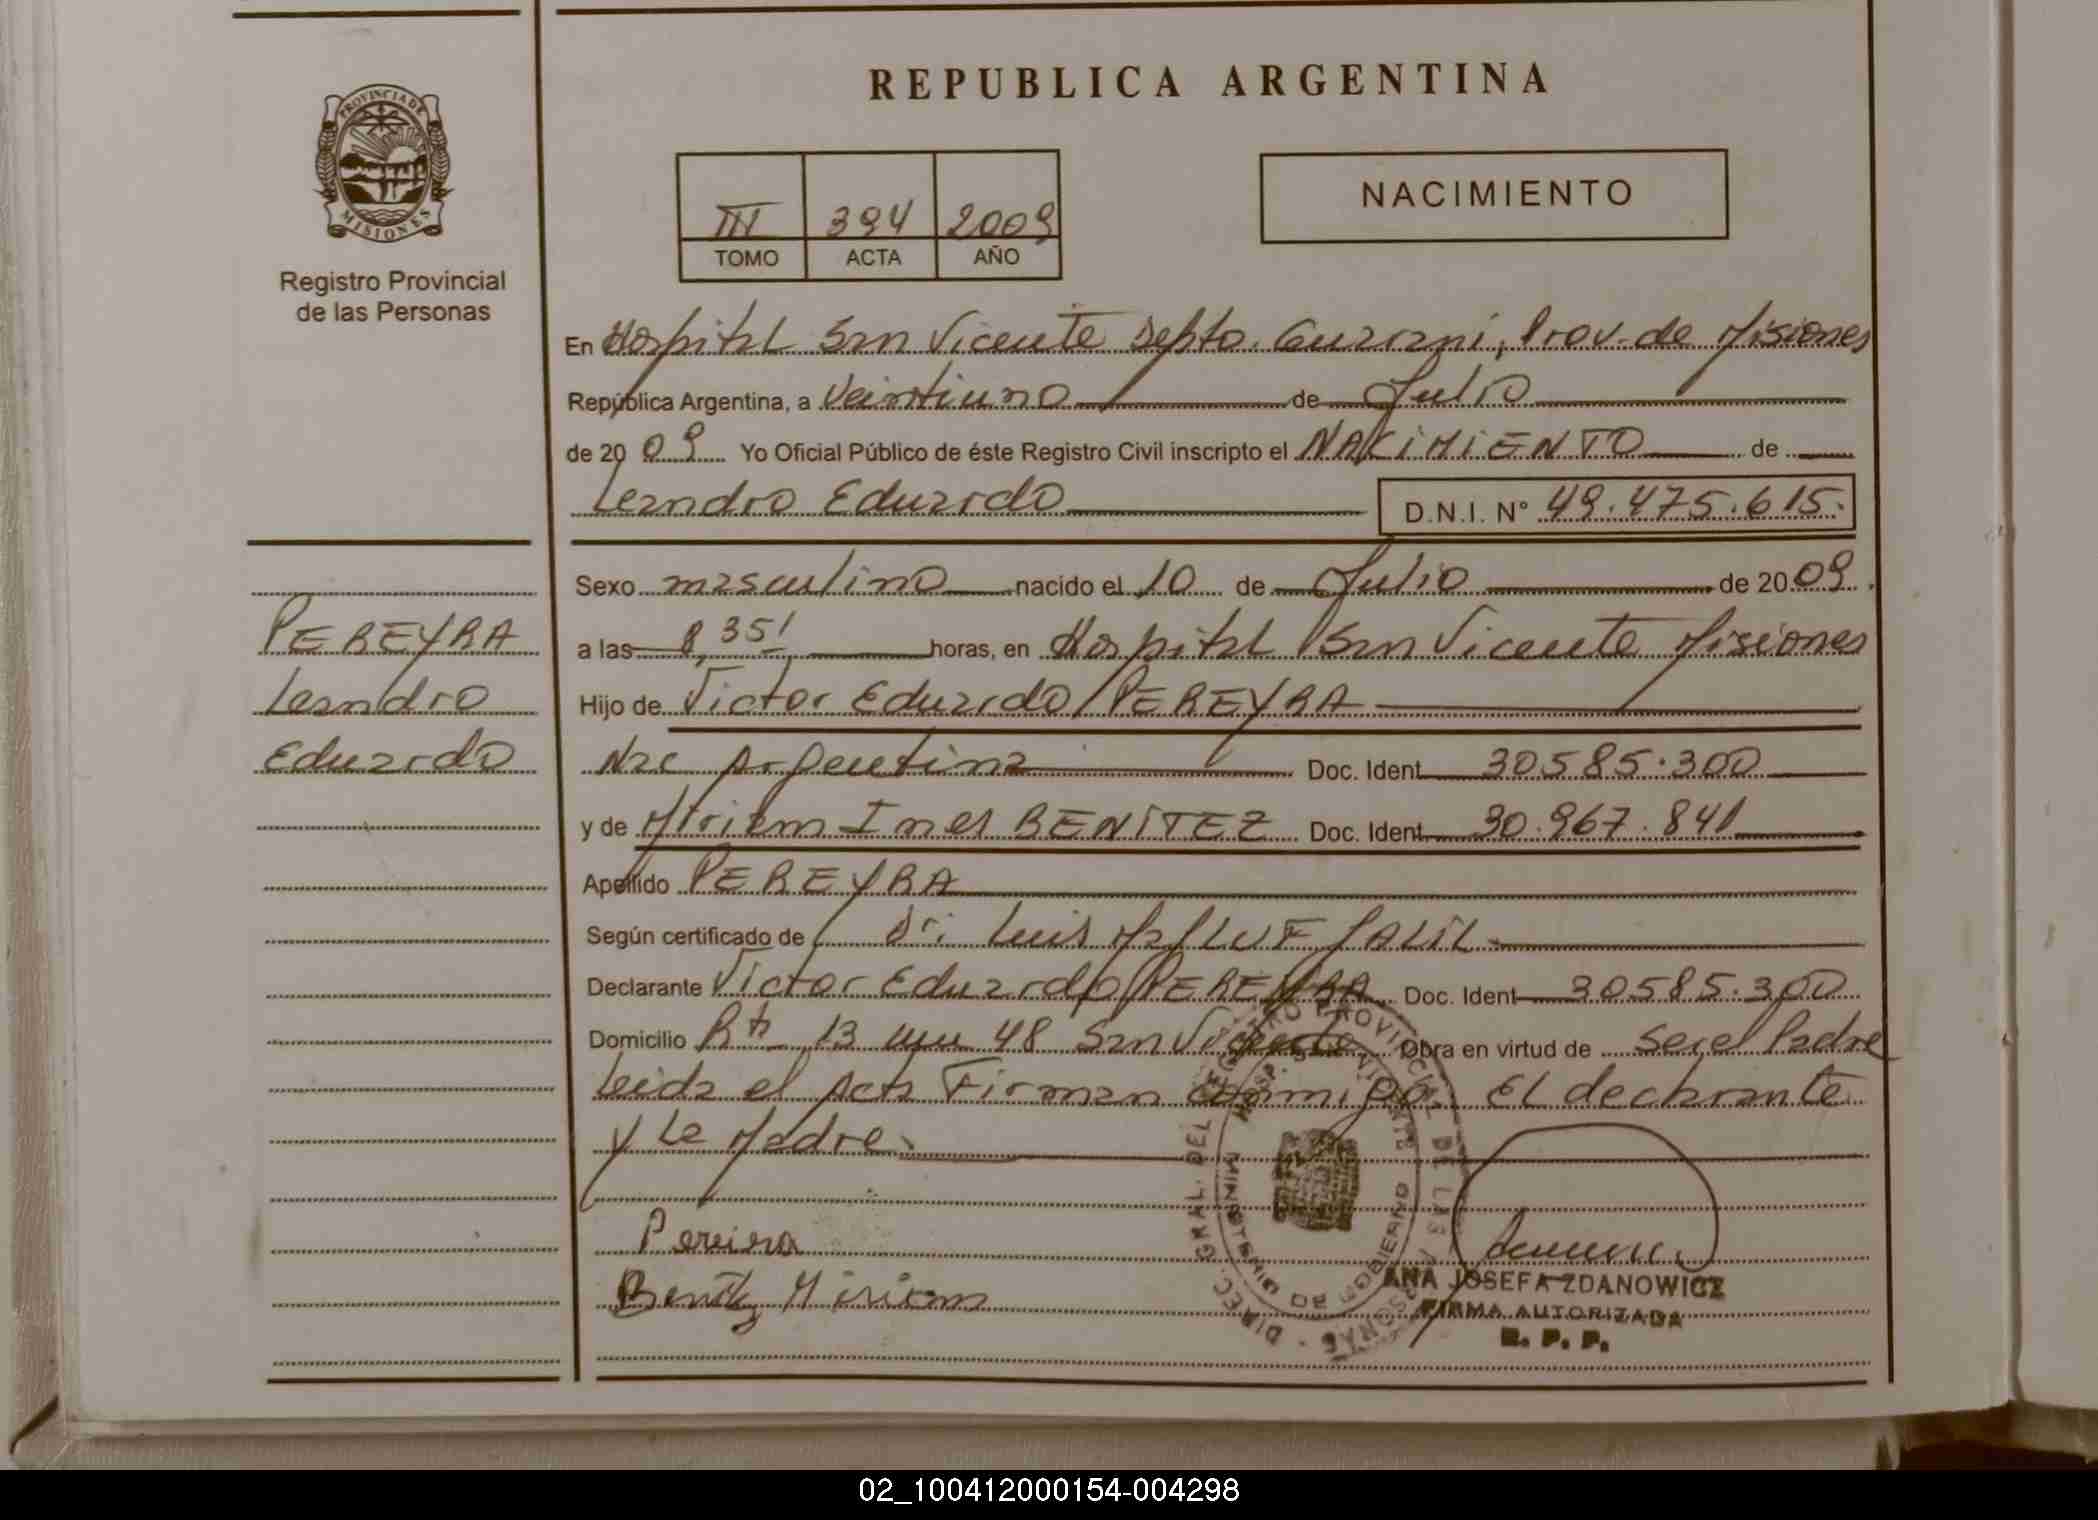 REPUBLICA ARGENTINA
PROVINCIA DE
MISIONES
Registro Provincial
de las Personas
III 394 2009
TOMO ACTA AÑO
NACIMIENTO
En Hospital San Vicente Depto. Guarani, Prov. de Misiones
República Argentina, a Veintiuno de Julio
de 20 09 Yo Oficial Público de éste Registro Civil inscripto el NACIMIENTO de
Leandro Eduardo D.N.I. N° 49.475.615.
Sexo masculino nacido el 10 de Julio de 20 09.
PEREYRA
a las 8,35' horas, en Hospital San Vicente Misiones
Leandro
Hijo de Victor Eduardo PEREYRA
Eduardo
Nac Argentina Doc. Ident 30585.300
y de Miriam Ines BENITEZ Doc. Ident 30.967.841
Apellido PEREYRA
Según certificado de Dr. Luis JALIL
Declarante Victor Eduardo PEREYRA Doc. Ident 30585.300
Domicilio Rta 13 48 San Vicente Obra en virtud de ser el Padre
Leida el Acta Firman conmigo El declarante
y La Madre.
Pereira
Benitez Miriam
DIREC. GRAL. DEL REGISTRO PROVINCIAL DE LAS PERSONAS
MINISTERIO DE GOBIERNO
ANA JOSEFA ZDANOWICZ
FIRMA AUTORIZADA
R. P. P.
02_100412000154-004298